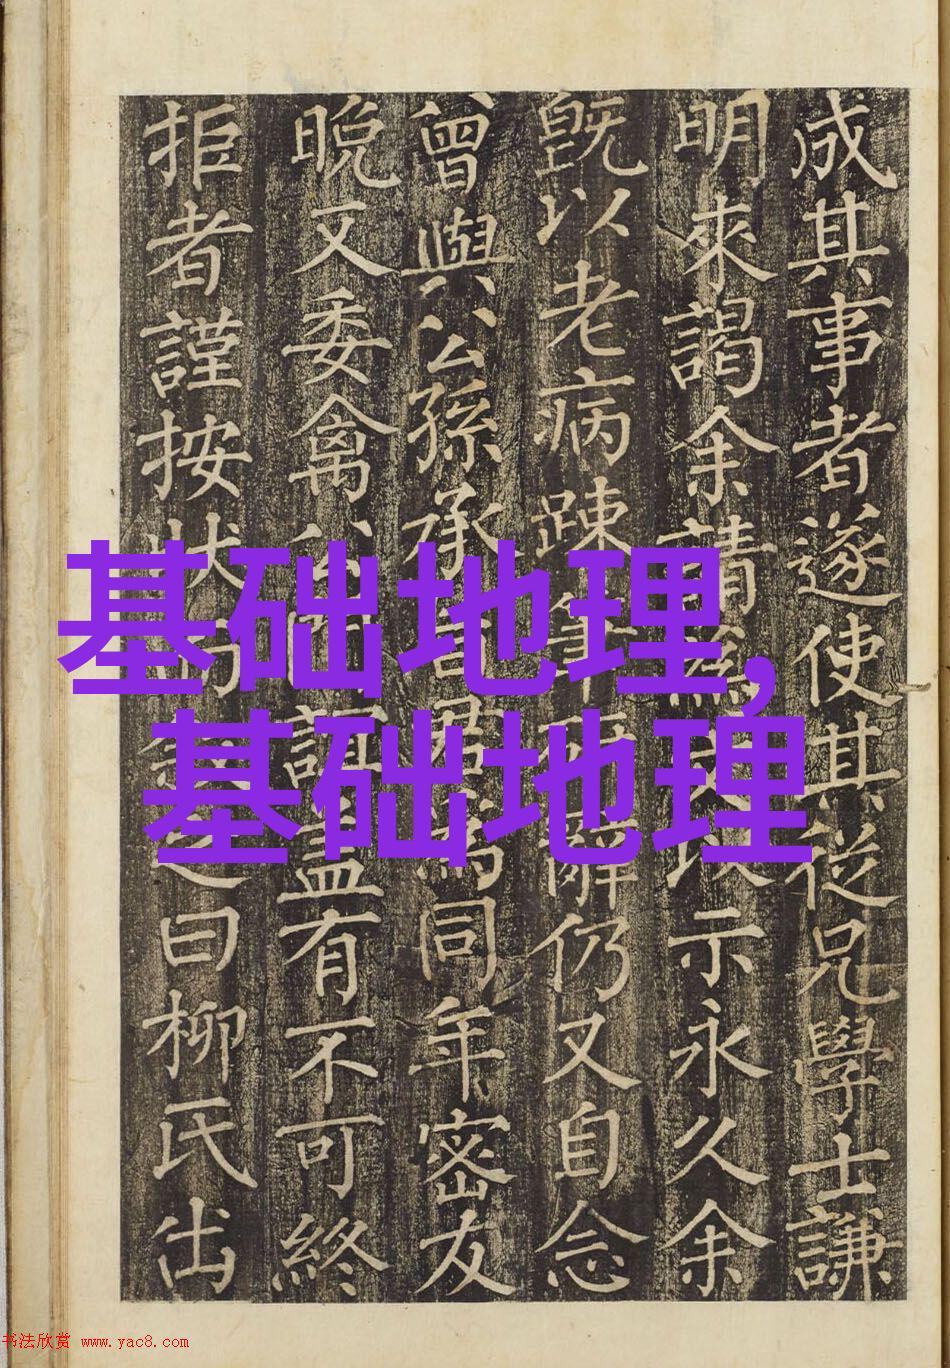 成其事者遂使其從兄學士謙
明來謁余請為以示永久余
旣以老病踈筆辭仍又自念
曾與公孫承旨君為同年密友
晚又委禽公門誼盡有不可終
拒者謹按狀之曰柳氏出
基础地理,
基础地理
书法欣赏 www.yac8.com